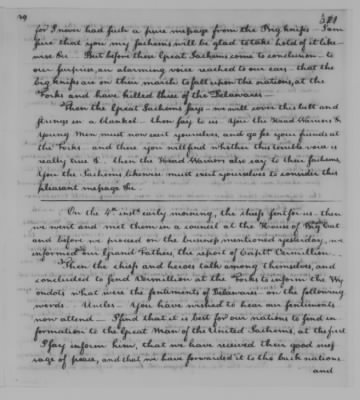 29 381
for I never had such a pure message from the Big knifes. I am
sure that you my Sachems will be glad to take hold of it like-
wise &c. But before these Great Sachems come to conclusion to
our surprise, an alarming voice reached to our ears – that the
big knifes are on their march to fall upon the nations, at the
Forks and have killed three of the Delawares –
Then the Great Sachems says – we will cover this belt and
strings in a blanket – then say to us. You the Head Warriors &
Young Men must now exert yourselves, and go see your friends at
the Forks – and there you will find whether this terrible voice is
really true &c. then the Head Warriors also say to their Sachems,
You the Sachems likewise must exert yourselves to consider this
pleasant message &c.
On the 4th inst. early morning, the chiefs sent for us – then
we went and met them in a council at the House of Big Cat
and before we proceed on the business mentioned yesterday, we
informed our Grand Fathers, the report of Capt. Vermillion. –
Then the chiefs and heroes talk among themselves, and
concluded to send Vermillion at the Forks to inform the Wy-
ondots what were the sentiments of Delawares on the following
words – Uncles – You have wished to hear our sentiments
now attend – I find that it is best for our nations to send in
formation to the Great Man of the United Sachems, at the first
I say inform him, that we have received their good mes
sage of peace, and that we have forwarded it to the back nations
and